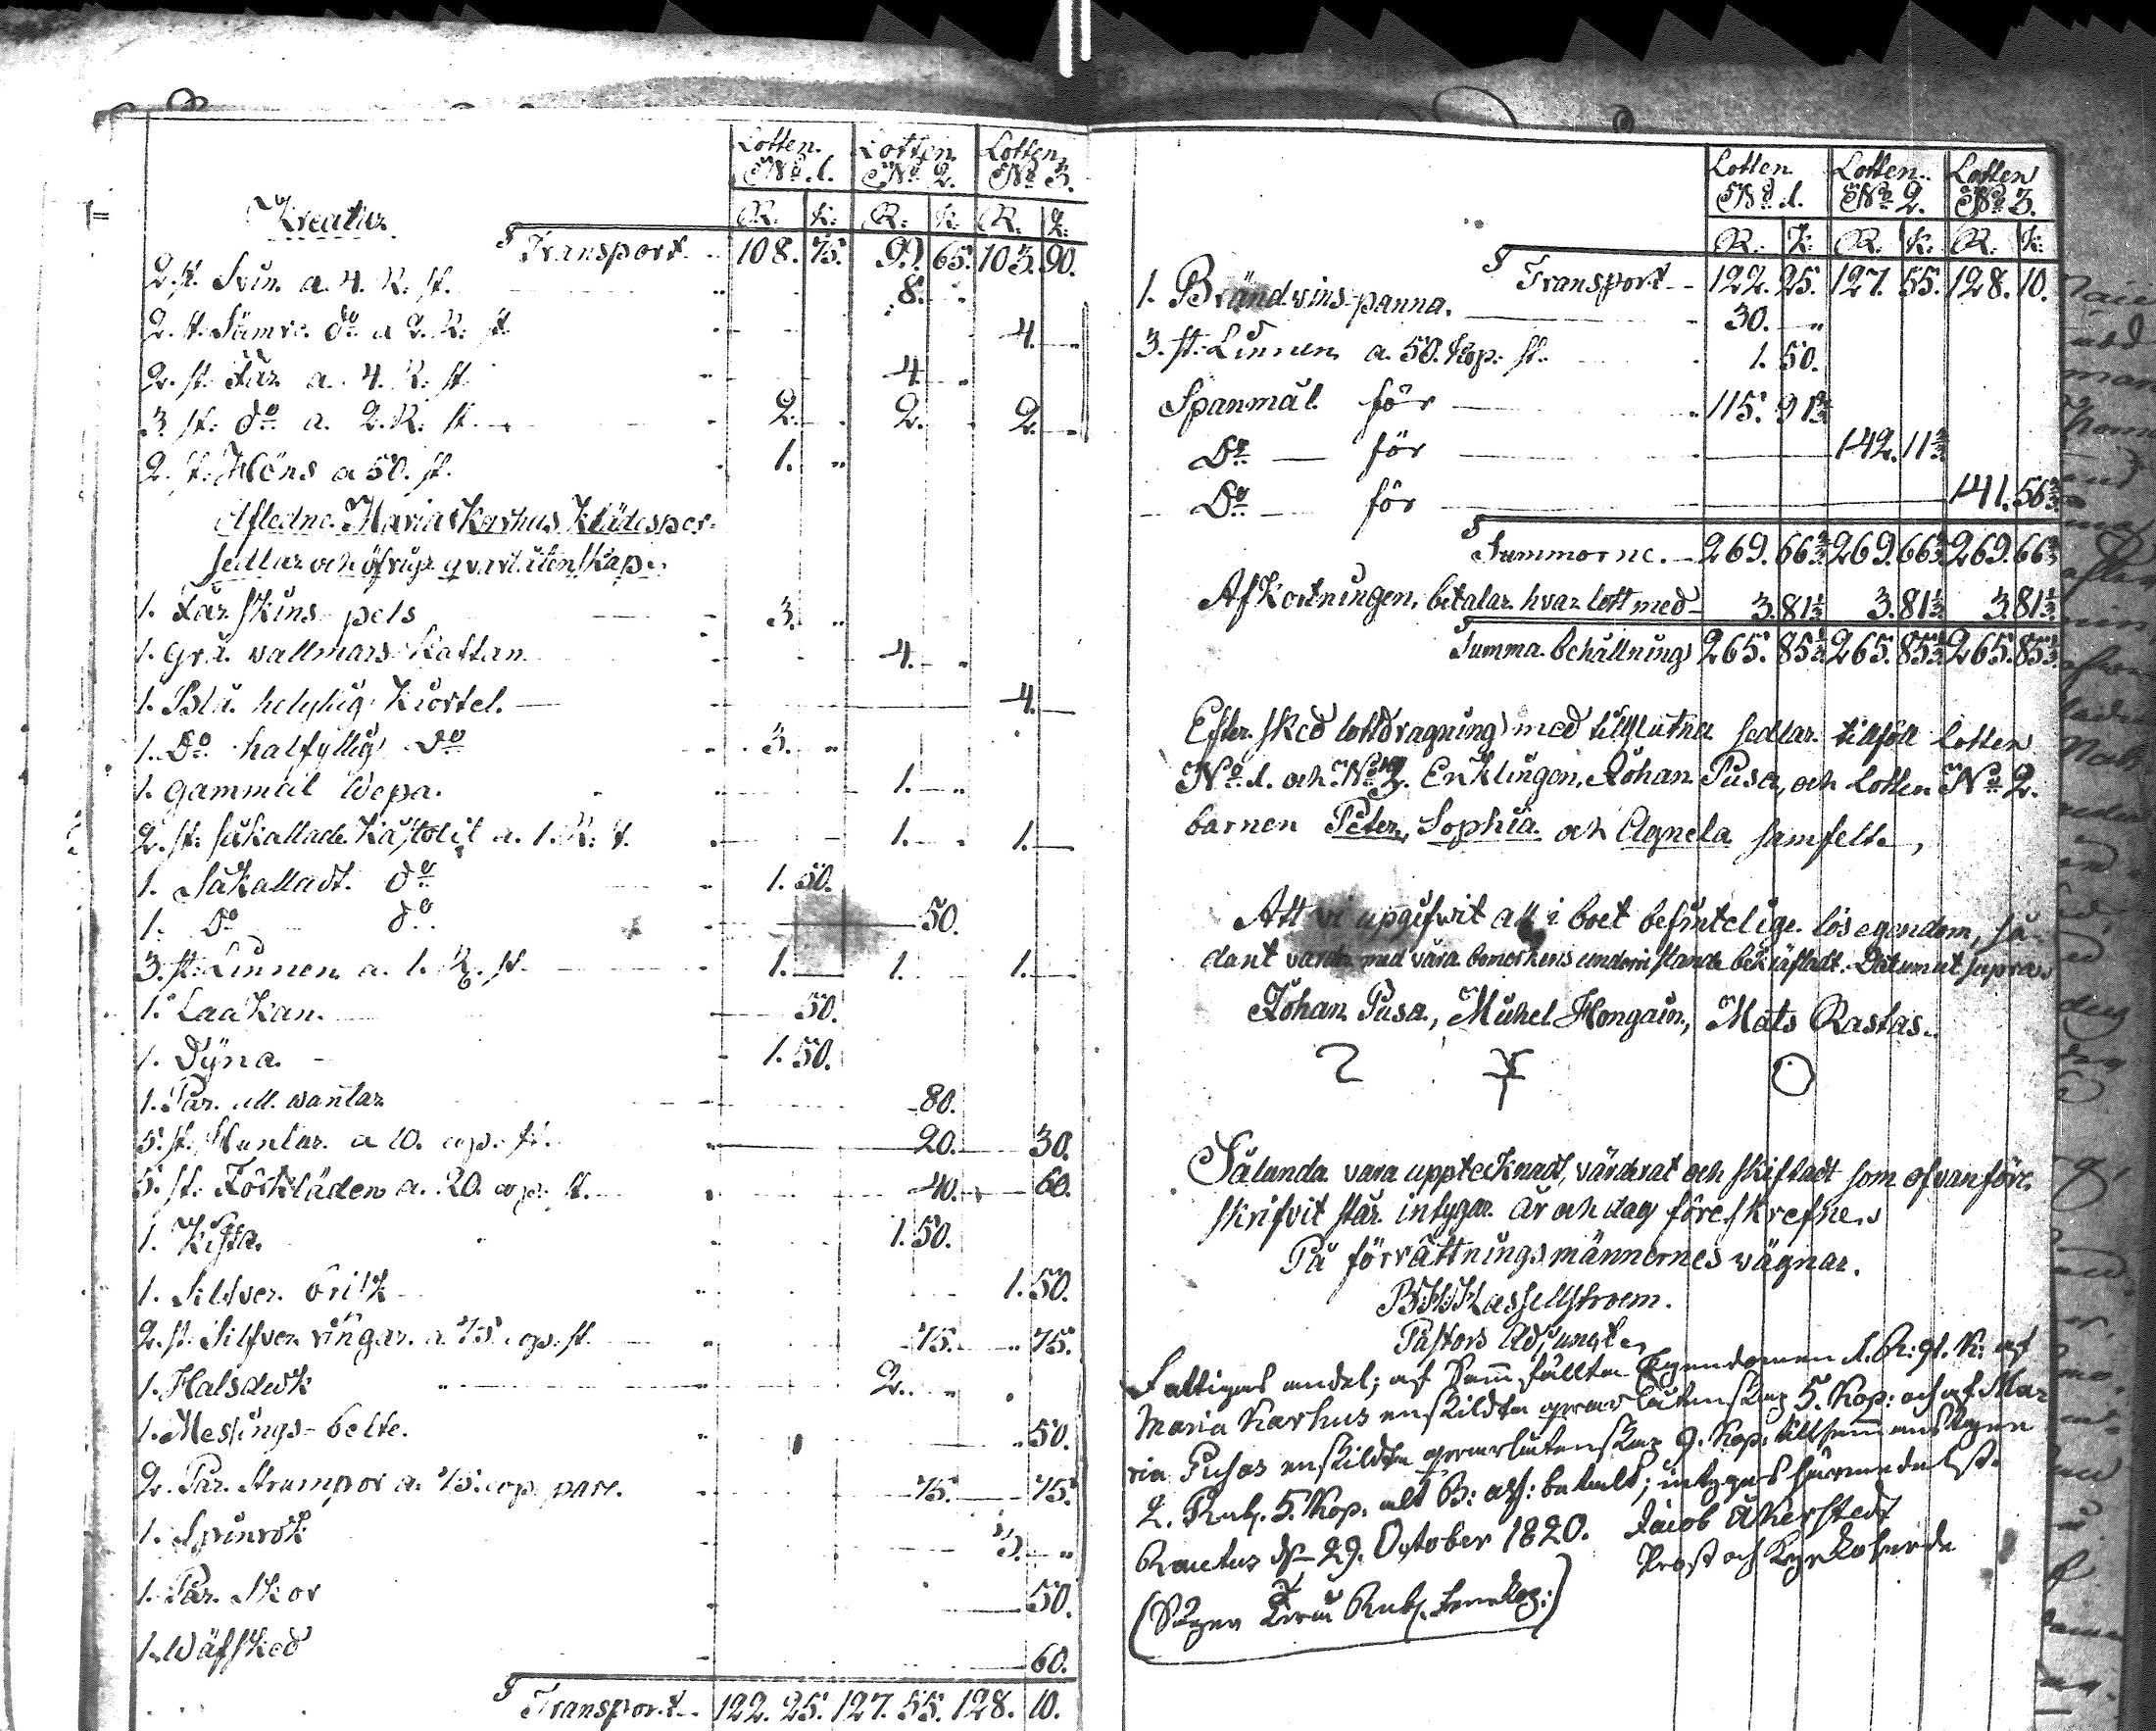 Lotten Lotten Lotten
No. 1. No. 2. No. 3.
Kreatur R: k: R: k: R: k:
Transport 108. 75. 99. 65. 103. 90.
2. st. Svin a. 4. R: st. 8. "
2. st. Sämre do a 2. R: st. 4. "
2. st. Får a. 4. R: st. 4. "
3 st: do a. 2. R: st. 2. " 2. " 2. "
2. st: Höns a 50. st. 1. "
Afledne Maria Karhus Klädesper-
sedlar och öfrige qvarlåtenskap.
1. Fårskins pels 3. "
1. Grå vallmars Kaftan 4. "
1. Blå helyllig Kiortel. 4. "
1. Do halfyllig do 3. "
1. gammal Wepa. 1. "
2. st: så kallade Kastolit a. 1. R: st. 1. " 1. "
1. Så Kalladt. do 1. 50.
1. Do do 50.
3. st: Linnen a. 1. R. st. 1. " 1. " 1. "
1. Laakan. 50.
1. Dÿna. 1. 50.
1. Par. ull. wantar 80.
5. st. Huntar. a 10. cop. st. 20. 30.
5. st. Förkläden a. 20. cop: st. 40. 60.
1. Kista. 1. 50.
1. Silfver britz 1. 50.
2. st. Silfver ringar. a 75. cop. st. 75. 75.
1. Halsduk 2. "
1. Messings-belte. 50.
2. Par. Strumpor a. 75. cop. pare. 75. 75.
1. Spinrok 3. "
1. Par. Skor 50.
1. Wäfsked 60.
Transport 122. 25. 127. 55. 128. 10.
Lotten Lotten Lotten
No. 1. No. 2. No. 3.
R: k: R: k: R: k:
Transport 122. 25. 127. 55. 128. 10.
1. Brändvins panna. 30. "
3. st: Linnen a. 50. kop: st. 1. 50.
Spanmål för 115. 91 2/3
Do för 142. 11 2/3
Do för 141. 56 2/3
Summorne. 269. 66 2/3 269. 66 2/3 269. 66 2/3
Afkortningen, betalar hvar lott med 3. 81 1/3 3. 81 1/3 3. 81 1/3
Summa behållning 265. 85 1/3 265. 85 1/3 265. 85 1/3
Efter sked lottdragning med tillslutna sedlar tillföll lotten
No. 1. och No. 3. Enklingen, Johan Pusa, och lotten No 2.
barnen Peter, Sophia och Agneta samfelt.,
Att vi upgifvit all i boet befintelige lös egendom, så-
dant varder med våra bomerkens undersittande bekräftadt. Datum ut supra.
Johan Pusa, Michel Hongain, Mats Rastas.
Sålunda vara upptecknadt, värderat och skiftadt som ofvanföre
skrifvit står intygar år och dag föreskrefne.
På förrättningsmännernes vägnar.
Hassellstroem.
Pastors Adjunct.
Fattigas andel; af Samfällta Egendomen 1. R: 91. K: af
Maria Karhus enskildta qvarlåtenskap 5. Kop: och af Ma-
ria Pusas enskildta qvarlåtenskap 9. Kop: tillsammans Säger
2. Rub. 5. Kop. alt B: ass: betalt; intygas härmedelst.
Rautus d. 29. October 1820. Jacob Åkerstedt
(Säger Twå Rub. fem Kop:) Prost och Kyrkoherde